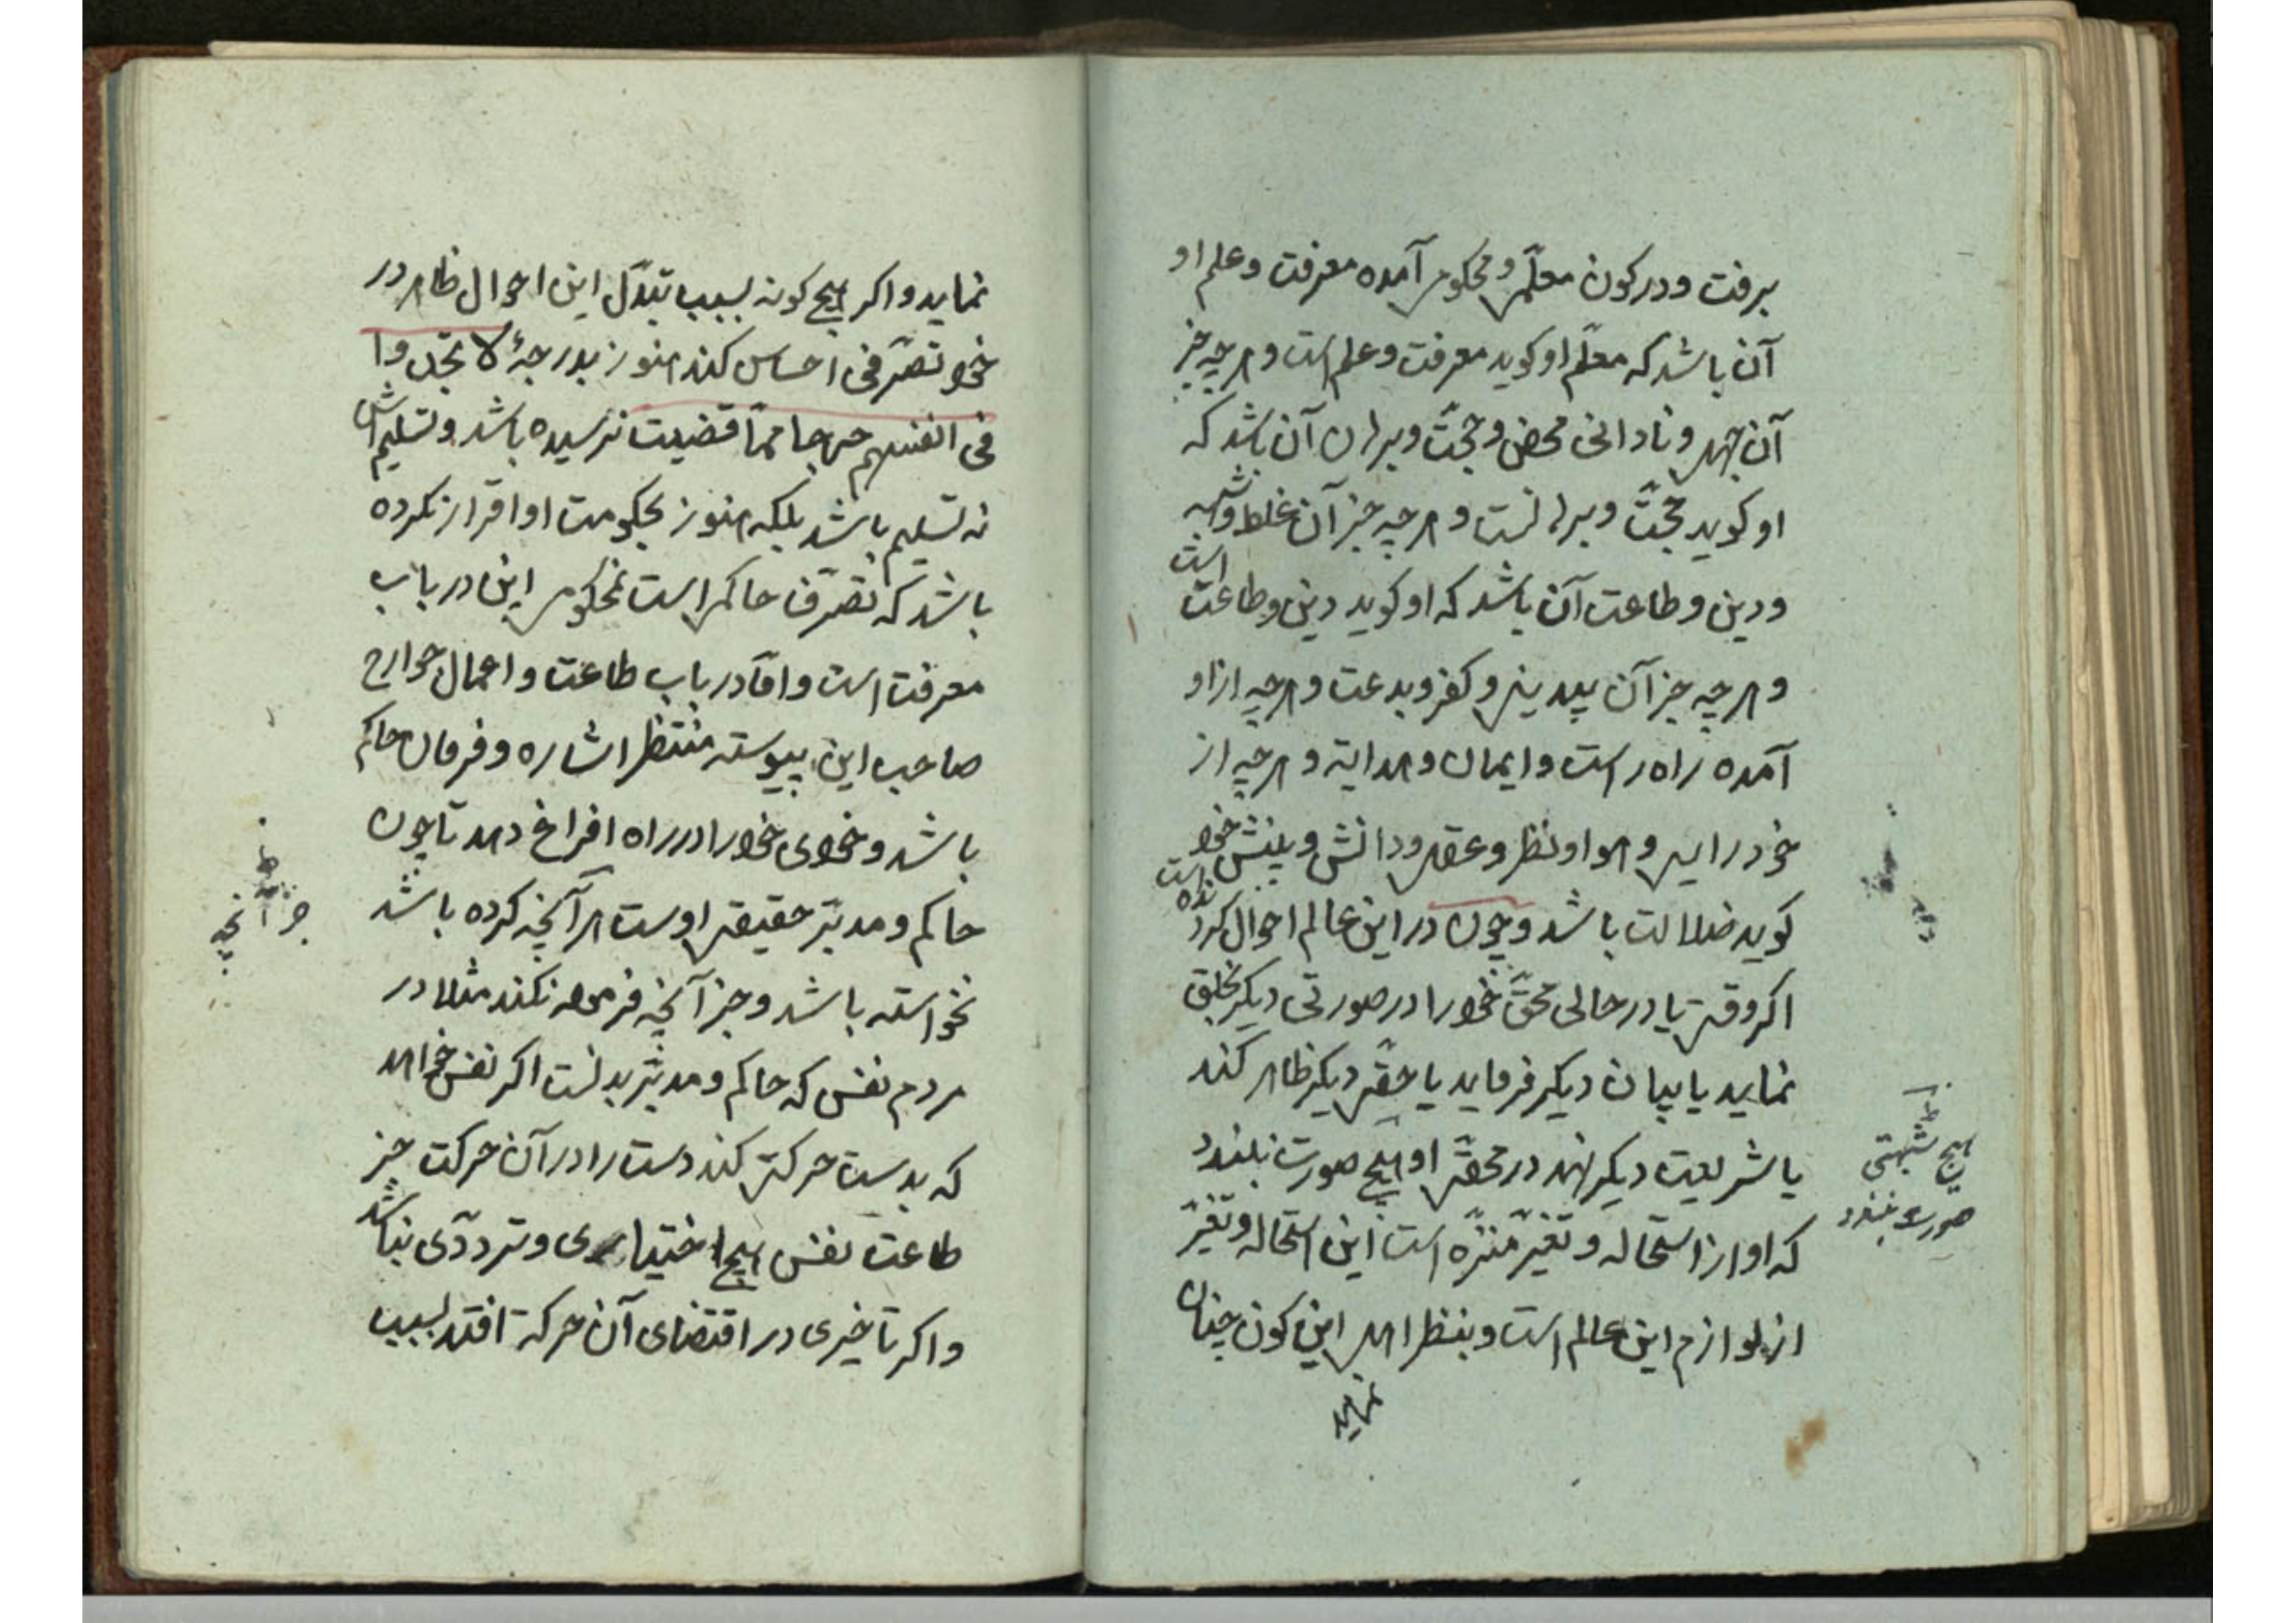 برفت و در کون معلّمی و محکومی آمده معرفت و علم او
آن باشد که معلّم او کوید معرفت و علم است و هرچه جز
آن جهل و نادانی محض و حجّت و برهان آن باشد که
او کوید حجّت و برهانست و هرچه جز آن غلط و شبهه
است
و دین و طاعت آن باشد که او کوید دین و طاعت
و هرچه جز آن بیدینی و کفر و بدعت و هرچه از او
آمده راه راست و ایمان و هدایة و هرچه از
خود رایی و هوا و نظر و عقل و دانش و بینش خود
کوید ضلالت باشد و چون در این عالم احوال کردنده است
اکر وقتی یا در حالی محقّ خود را در صورتی دیکر بخلق
نماید یا بیان دیکر فرماید یا حقّی دیکر ظاهر کند
یا شریعت دیکر نهد در محقّی او هیچ صورت نبندد
که او از استحاله و تغیّر منزّه است این استحاله و تغیّر
از لوازم این عالم است و بنظر اهل این کون چنان
نماید
هیچ شبهتی
صورت نبندد
نماید و اکر هیچ کونه بسبب تبدّل این احوال ظاهر در
خود تصرّفی احساس کند هنوز بدرجۀ لا یجدوا
فی انفسهم حرجا ممّا قضیت نرسیده باشد و تسلیم‌اش
نه تسلیم باشد بلکه هنوز بحکومت او اقرار نکرده
باشد که تصرّف حاکمراست نمحکومرا این در باب
معرفت است و امّا در باب طاعت و اعمال جوارح
صاحب این پیوسته منتظر اشاره و فرمان حاکم
باشد و خودی خود را در راه افراغ دهد تا چون
حاکم و مدبّر حقیقی اوست هر آنچه کرده باشد
نخواسته باشد و جز آنچه فرموده نکند مثلا در
مردم نفس که حاکم و مدبّر بدنست اکر نفس خواهد
که بدست حرکتی کند دست را در آن حرکت جز
طاعت نفس هیچ اختیاری و تردّدی نباشد
و اکر تأخیری در اقتضای آن حرکة افتد بسبب
جز آنچه